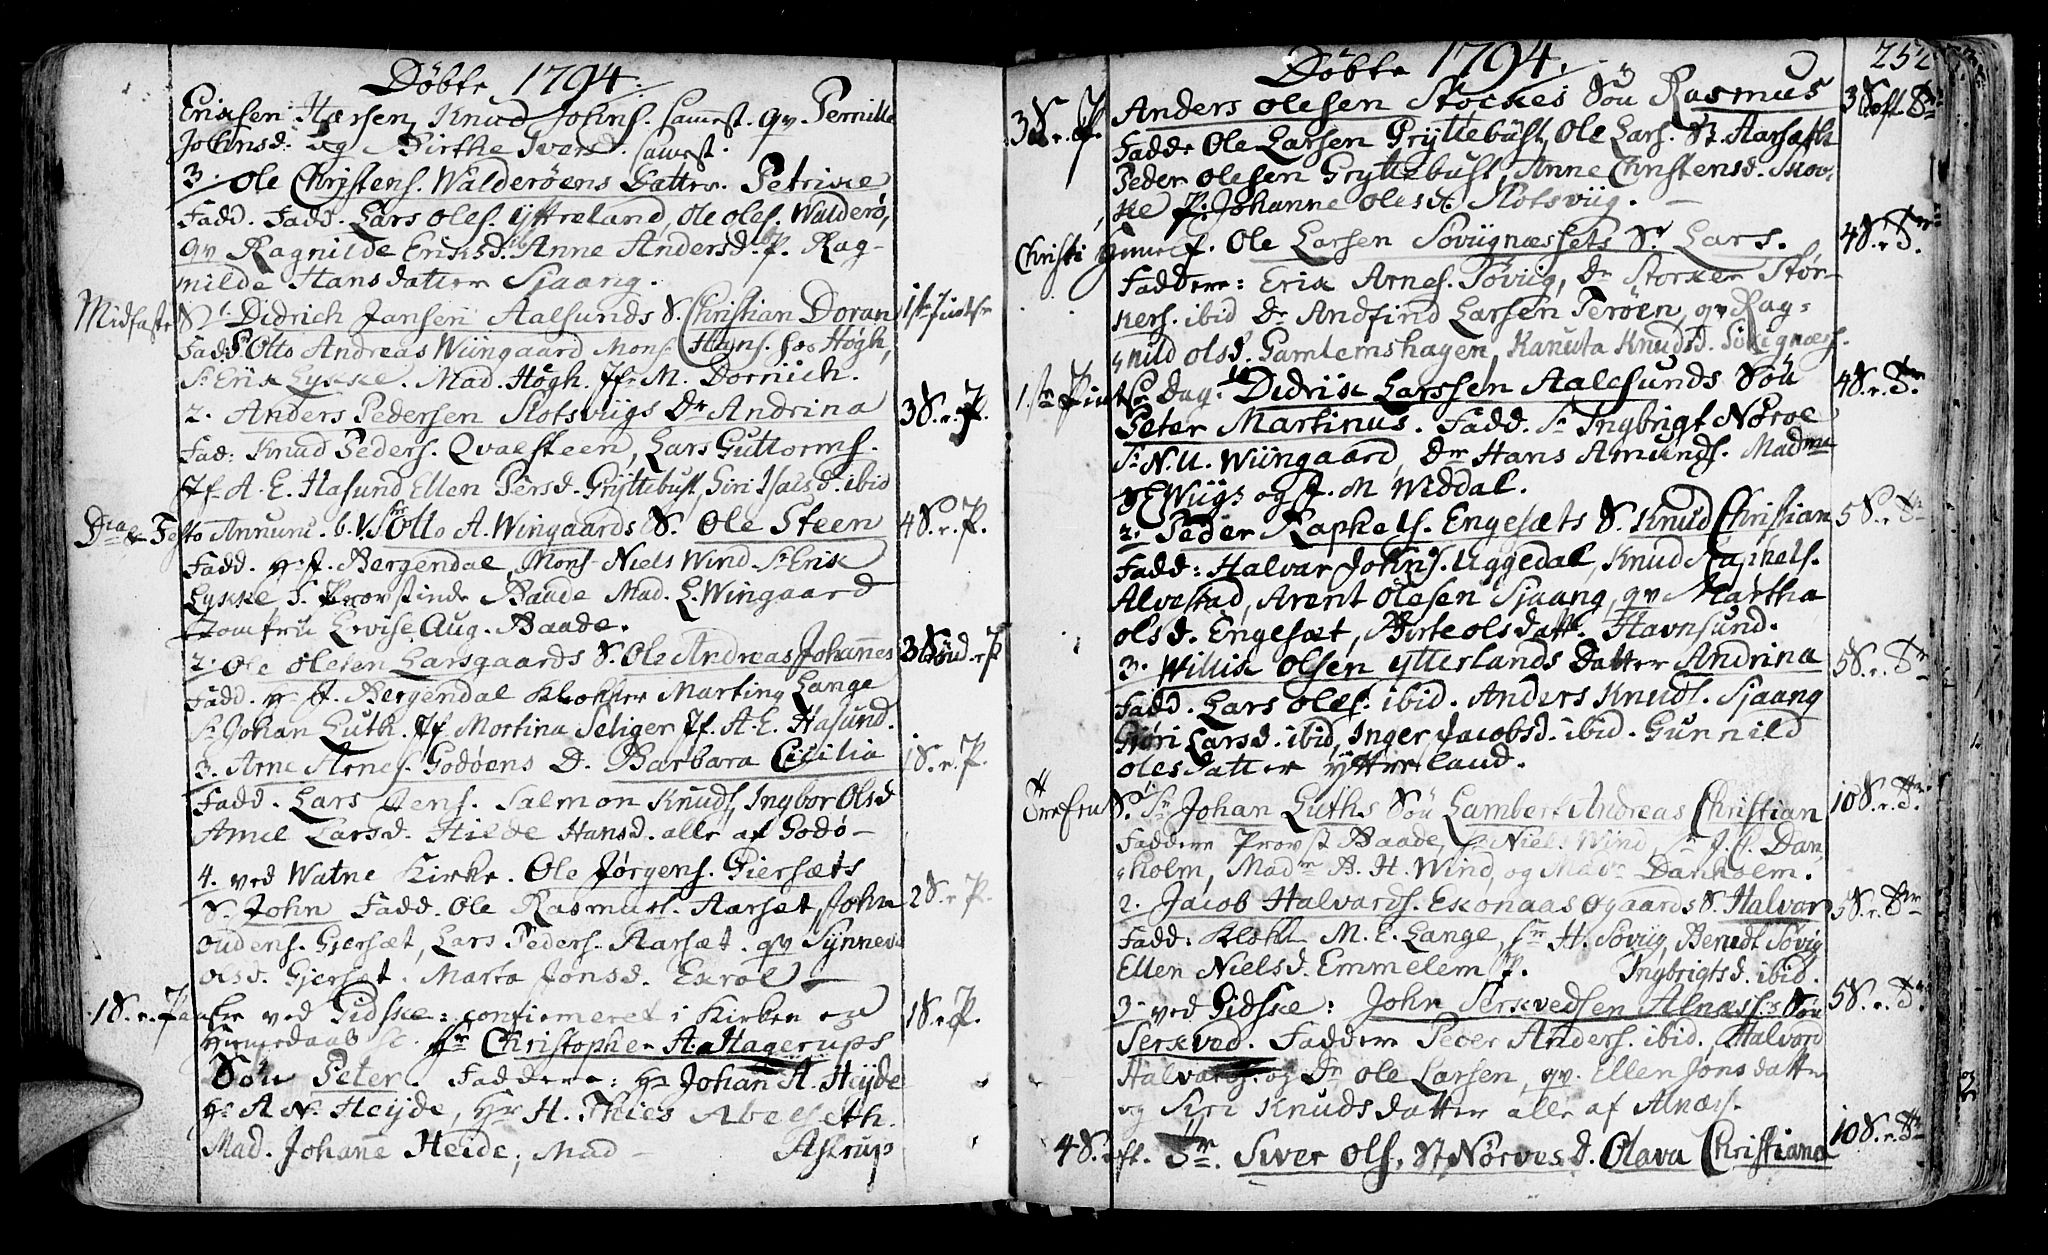 Döbte 1794.
Erixsen Hæssen, Knud Johns. samest. qv. Pernille
Johnsd. og Birthe Iversd. samest.
3. Ole Christens. Walderöens Datter. Petrine
Fadd. Fadd. Lars Oles. Yttreland, Ole Oles. Walderö,
qv Ragnilde Eriksd. ib. Anne Andersd. P. Rag-
nilde Hansdatter Sjaang.
Midfaste S. Didrich Jansen Aalsunds S. Christian Doran
Fad: Sr Otto Andreas Wiingaard Mons. Hans Høgh,
Sr Erik Lykke. Mad. Høgh. Jfr M. Dornich.
2. Anders Pedersen Slotsviigs Dr Andrina 3 S. r. P.
Fad: Knud Peders. Qvalsteen, Lars Guttorms.
Jf. A. E. Hasund Ellen Persd. Gryttebust, Siri Isalsd. ibid
Festo Annunc. b. V. Sr Otto A. Wingaards S. Ole Steen 4 S. r. P.
Fadd. Hr J. Bergendal, Mons Niels Wind Sr Erik
Lykke, Provstinde Baade Mad. E. Wingaard
Jomfru Lovise Aug. Baade.
2. Ole Olesen Larsgaards S. Ole Andreas Johannes
Fadd. Hr J. Bergendal Klokker Marting Lange
Sr Johan Luth. Jf Martina Seliger Jf. A. E. Hasund.
3. Arne Arnes. Godöens D. Barbara Cicilia 1 S. r. P.
Fadd. Lars Jens. Salmon Knuds, Ingbor Olsd
Anne Larsd. Hilde Hansd. alle af Godö-
4. ved Watne Kirke. Ole Jørgens. Giersæts
S. John Fadd. Ole Rasmuss. Aarsæt, John 2 S. r. P.
Oudens. Gjersæt, Lars Peders. Aarsæt. qv Synneve
Olsd. Gjersæt. Marta Jonsd. Exröe
1 S. r. Paaske ved Gidske: confirmeret i Kirken en 1 S. r. P.
Hiemedaab Hr Christopher A. Hagerups
Sön Peter. Faddere: Hr Johan A. Heyde
Hr A N. Heyde, Hr H. Thies Abelseth.
Mad. Johanne Heide, Mad - Astrup
Döbte 1794. 252
3 S. r. P. Anders Olesen Stockes Sön Rasmus
Fadd. Ole Larsen Gryttebust, Ole Lars. St. Aarsæth
Peder Olesen Gryttebust, Anne Christensd. Skov-
ke P. Johanne Olesd. Slotsviig.
Christi Himelf. Ole Larsen Söviignæssets Sr Lars.
Faddere: Erik Arnes. Söviig, Dr Storker Stör-
kers. ibid Dr Andfind Larsen Teröen, qv Rag-
nild Olsd. Gamlemshagen, Kanuta Knudsd. Sövignæss.
1. Pintse Dag. Didrik Larssen Aalesunds Sön
Peter Martinus. Fadd. Sr Ingbrigt Nörve
Sr N. U. Wiingaard, Dr Hans Amunds. Madme
E Wiigs og J. M Weddal.
2. Peder Raphels. Engesæts S. Knud Christian 5 S. r. Tr
Fadd: Halvar Johns. Uggedal, Knud Raphels.
Alvestad, Arent Olesen Sjaang, qv Martha
Olsd. Engesæt, Birte Olsdatt. Havnsund.
3. Willik Olsen Ytterlands Datter Andrina 5 S. r. Tr
Fadd. Lars Oles. ibid. Anders Knuds. Sjaang
Gjöri Larsd. ibid, Inger Jacobsd. ibid. Gunnild
Olesdatter Ytterland.
S. Sr Johan Luths Sön Lambert Andreas Christian 10 S. r. Tr
Faddere Provst Baade, Niels Wind, Dan-
holm, Madm B. H. Wind, og Madm Danholm.
2. Jacob Halvards. Exonaas Ogaards S. Halvar 5 S. r. Tr
Fadd: Klokk M. E. Lange, Sr H. Söviig, Berndt Sövig
Ellen Nielsd. Emmelem P. Ingbrigtsd. ibid.
3. ved Gidske: John Serkvedsen Alnæss Sön 5 S. r. Tr
Serkved. Faddere Peder Anders. ibid. Halvard
Halvards. og Dr Ole Larsen, qv. Ellen Jonsdatter
og Siri Knudsdatter alle af Alnæs.
4 S. eft. Tr. Siver Ols. St Nörves D. Olava Christiana 10 S. r. Tr